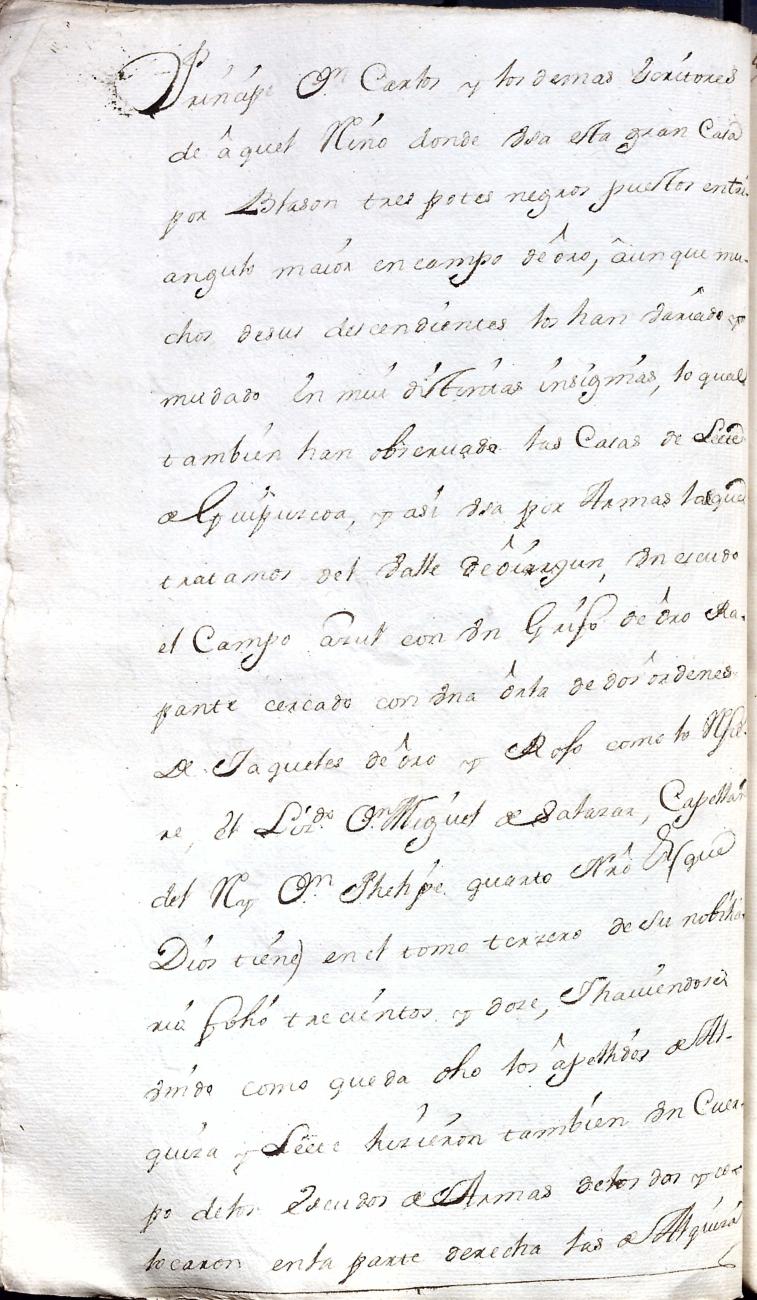 Principe Dn Carlos y los demas escritores
de âquel Reino donde vsa esta gran Casa
por Blason tres potes negros puestos entri-
angulo maior en campo de ôro, âunque mu-
chos desus descendientes los han variado y
mudado en mui distintas insignias, lo qual
tambien han obseruado las Casas de
de Guipuzcoa, y asi vsa por Armas la que
tratamos del Valle de ôiarzun, vn escudo
el Campo azul con vn Grifo de ôro Ra-
pante cercado con vna ôrla de dos ordenes
De Jaqueles de ôro y Roxo como lo Refie-
re, el Lizdo Dn Miguel de Salazar, Capellan
del Rey Dn Phelipe quarto Nrô Sr (que
Dios tiene) en el tomo terzero de su nobilia-
rio folio trecientos y doze, I hauiendose
vnido como queda dho los âpellidos de Al-
quiza y hizieron tambien vn Cuer-
po delos Escudos de Armas delos dos y co-
locaron enla parte derecha las de Alquiza